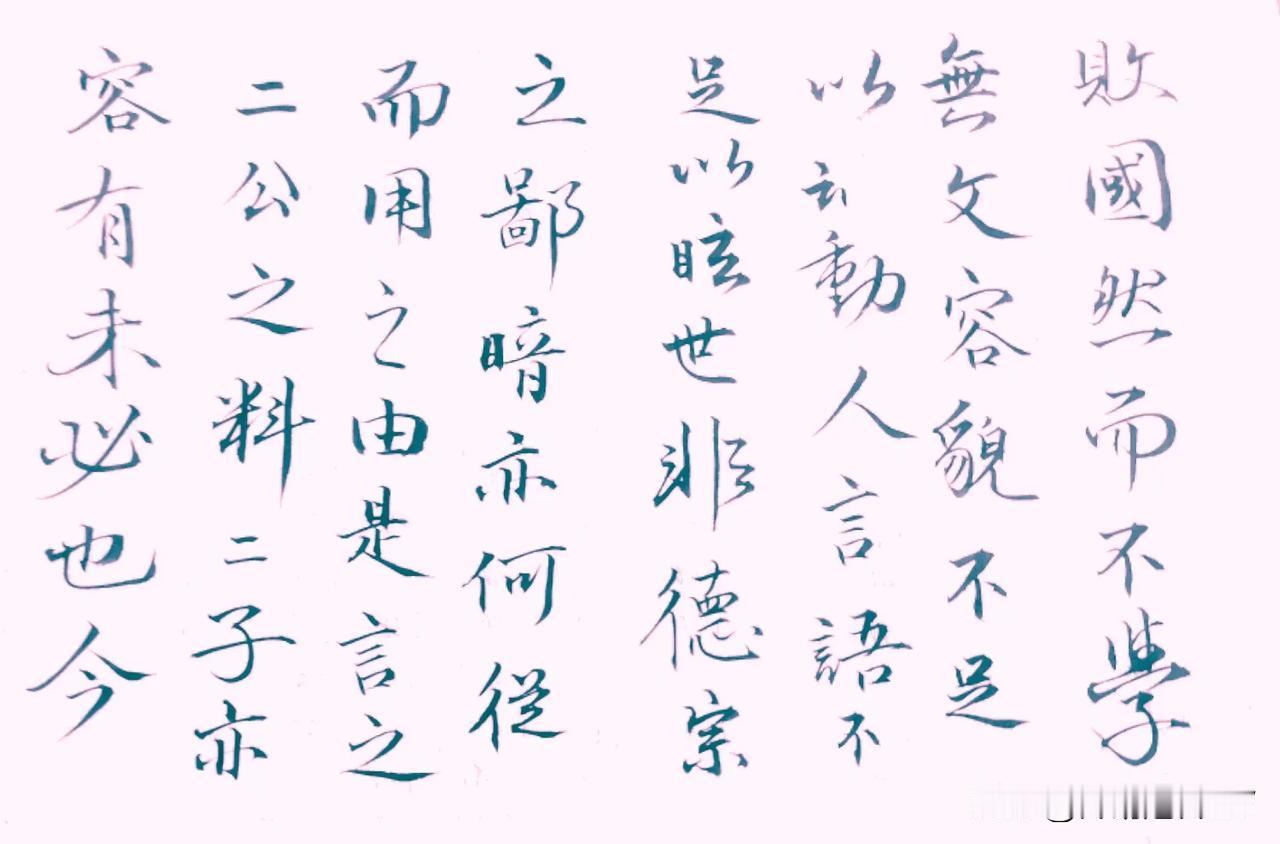 敗國然而不學
無文容貌不足
以動人言語不
足以眩世非德宗
之鄙暗亦何從
而用之由是言之
二公之料二子亦
容有未必也今